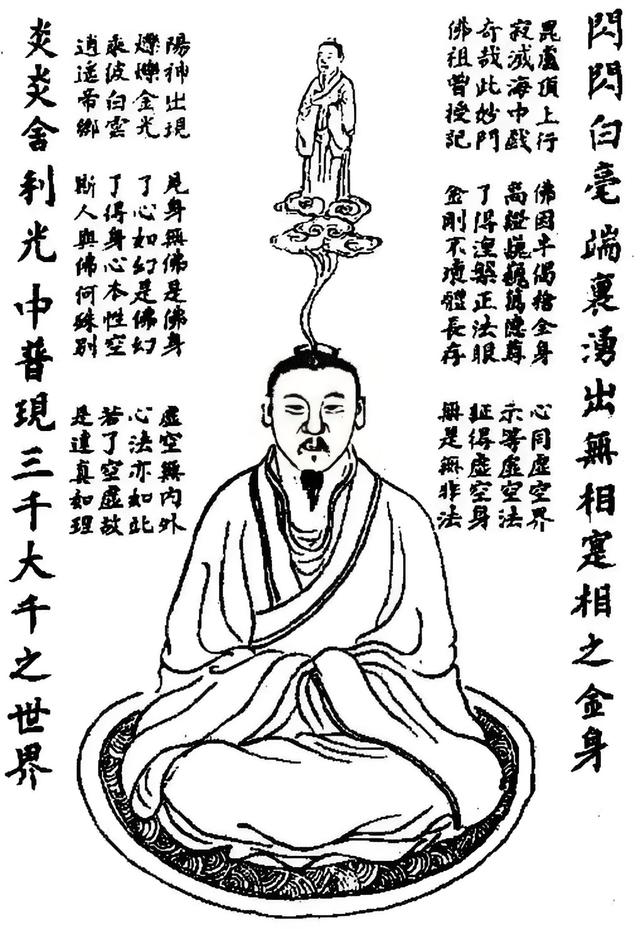 閃閃白毫端裏湧出無相寔相之金身
毘盧頂上行
寂滅海中戲
奇哉此妙門
佛祖曾授記
佛因半偈捨金身
巍巍萬德尊
了得涅槃正法眼
金剛不壞體長存
心同虛空界
示等虛空法
証得虛空身
無是無非法
陽神出現
爍爍金光
乘彼白雲
逍遙帝鄉
見身無佛是佛身
了心如幻是佛幻
了得身心本性空
斯人與佛何殊別
虛空無內外
心法亦如此
若了空虛故
是達真如理
炎炎舍利光中普現三千大千之世界